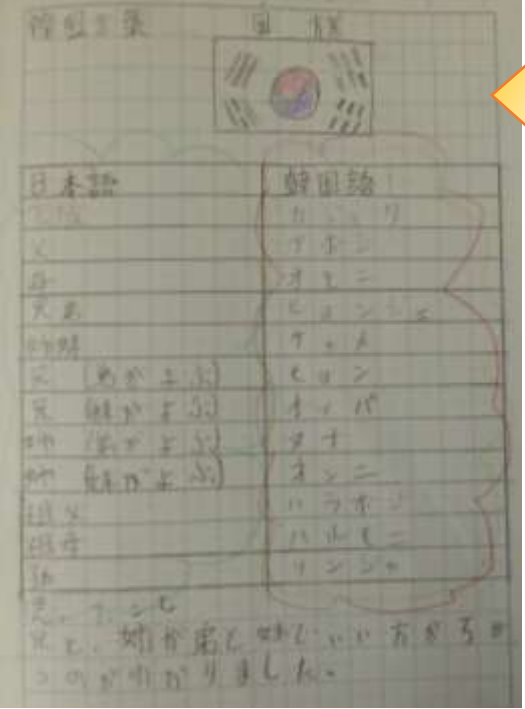 韓国言葉 国旗
日本語 韓国語
家族 カジョク
父 アボジ
母 オモニ
兄弟 ヒョンジェ
姉妹 チャメ
兄 (弟がよぶ) ヒョン
兄 (妹がよぶ) オッパ
姉 (弟がよぶ) ヌナ
姉 (妹がよぶ) オンニ
祖父 ハラボジ
祖母 ハルモニ
兄と、姉が弟と妹でいい方がちが
うのがわかりました。